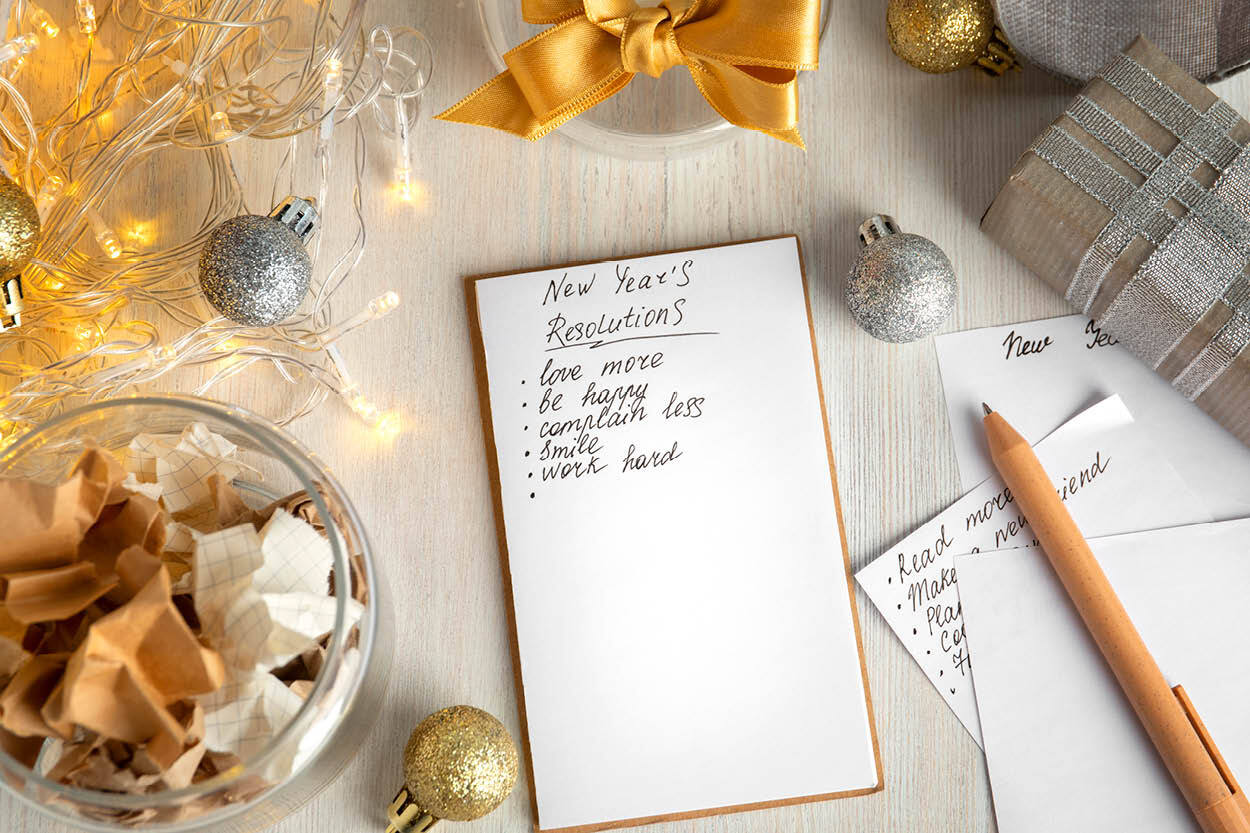 New Year's
Resolutions
• love more
• be happy
• complain less
• smile
• work hard
•
New
• Read more
• Make a new friend
•
•
•
•